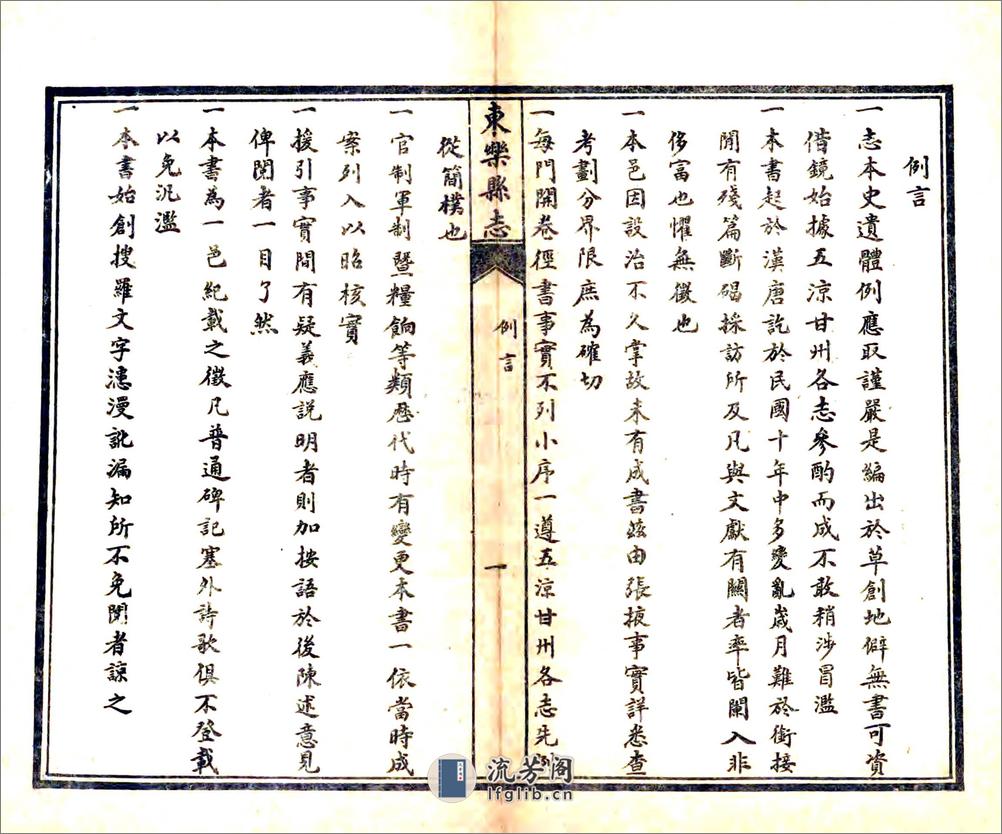 例言
一志本史遺體例應取謹嚴是編出於草創地僻無書可資
借鏡始據五涼甘州各志參酌而成不敢稍涉冒濫
一本書起於漢唐訖於民國十年中多變亂歲月難於銜接
閒有殘篇斷碣採訪所及凡與文獻有關者率皆闌入非
侈富也懼無徵也
一本邑因設治不久掌故未有成書茲由張掖事實詳悉查
考劃分界限庶為確切
一每門開卷徑書事實不列小序一遵五涼甘州各志先例
東樂縣志
例言
一
從簡樸也
一官制軍制暨糧餉等類歷代時有變更本書一依當時成
案列入以昭核實
一援引事實間有疑義應説明者則加按語於後陳述意見
俾閱者一目了然
一本書為一邑紀載之徵凡普通碑記塞外詩歌俱不登載
以免汎濫
一本書始創搜羅文字漶漫訛漏知所不免閱者諒之
流芳阁
lfglib.cn